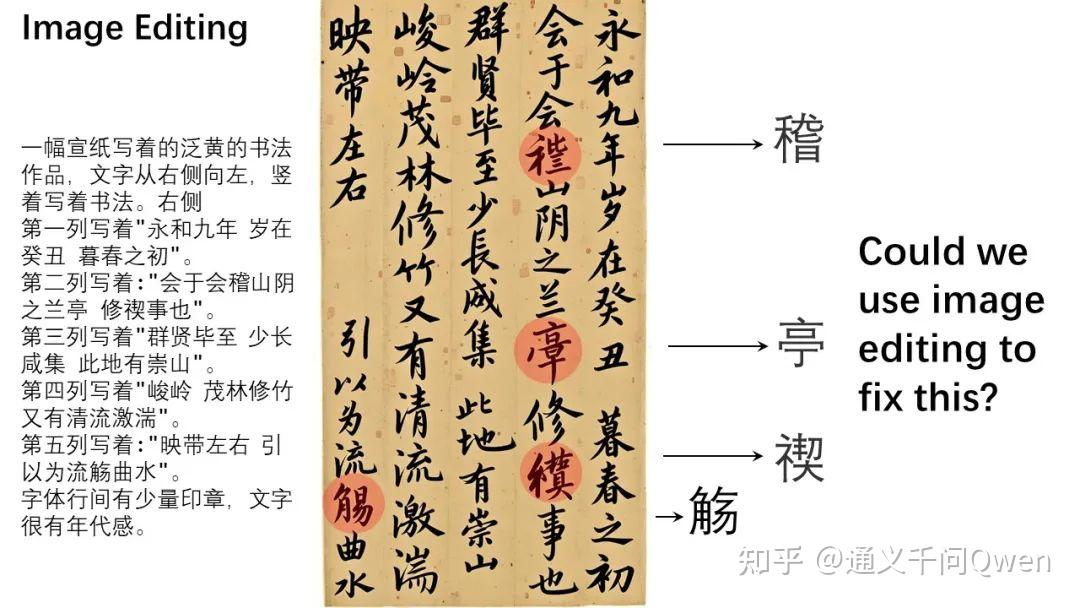 Image Editing
一幅宣纸写着的泛黄的书法
作品，文字从右侧向左，竖
着写着书法。右侧
第一列写着"永和九年 岁在
癸丑 暮春之初"。
第二列写着:"会于会稽山阴
之兰亭 修禊事也"。
第三列写着"群贤毕至 少长
咸集 此地有崇山"。
第四列写着"峻岭 茂林修竹
又有清流激湍"。
第五列写着:"映带左右 引
以为流觞曲水"。
字体行间有少量印章，文字
很有年代感。
永和九年岁在癸丑 暮春之初
会于会山阴之兰 修事也
群贤毕至少長咸集 此地有崇山
峻岭茂林修竹又有清流激湍
映带左右 引以为流曲水
稽
亭
禊
觞
Could we
use image
editing to
fix this?
知乎 @通义千问Qwen